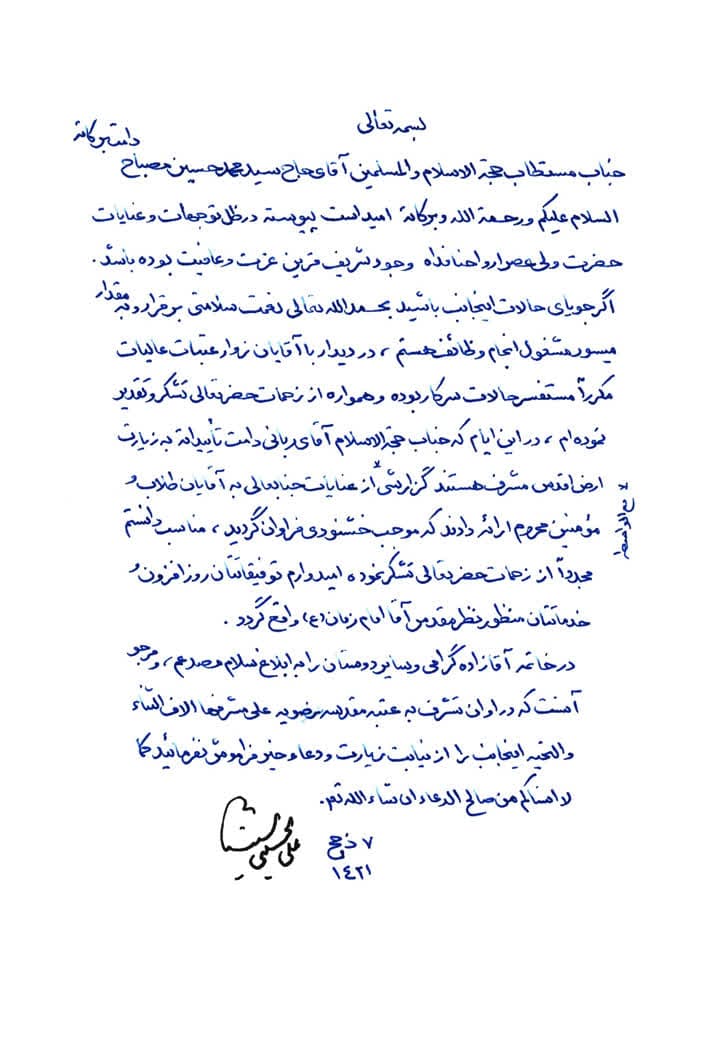 بسمه تعالی
جناب مستطاب حجة الاسلام والمسلمین آقای حاج سید محمد حسین مصباح دامت برکاته
السلام علیکم ورحمة الله وبرکاته امید است پیوسته در ظل توجهات و عنایات
حضرت ولی عصر ارواحنا فداه وجود شریف قرین عزت و عافیت بوده باشد.
اگر جویای حالات اینجانب باشید بحمدالله تعالی نعمت سلامتی برقرار و به مقدار
میسور مشغول انجام وظائف هستم ، در دیدار با آقایان زوار عتبات عالیات
مکرراً مستفسر حالات سرکار بوده و همواره از زحمات حضرتعالی تشکر و تقدیر
نموده ام ، در این ایام که جناب حجة الاسلام آقای ربانی دامت تأییداته به زیارت
ارض اقدس مشرف هستند گزارشی * از عنایات جنابعالی به آقایان طلاب و
* مع الواسطه
مؤمنین محروم ارائه دادند که موجب خشنودی فراوان گردید ، مناسب دانستم
مجدداً از زحمات حضرتعالی تشکر نموده امیدوارم توفیقاتتان روز افزون و
خدماتتان منظور نظر مقدس آقا امام زمان (ع) واقع گردد .
در خاتمه آقازاده گرامی و سایر دوستان را به ابلاغ سلام مصدعم ، و مرجو
آنست که در اوان تشرف به عتبه مقدسه رضویه علی مشرفها الاف الثناء
والتحیه اینجانب را از نیابت زیارت و دعاء خیر فراموش نفرمائید کما
لا انساکم من صالح الدعاء ان شاء الله تعـ.
۷ ذ حج
١٤٢١
علی الحسینی السیستانی